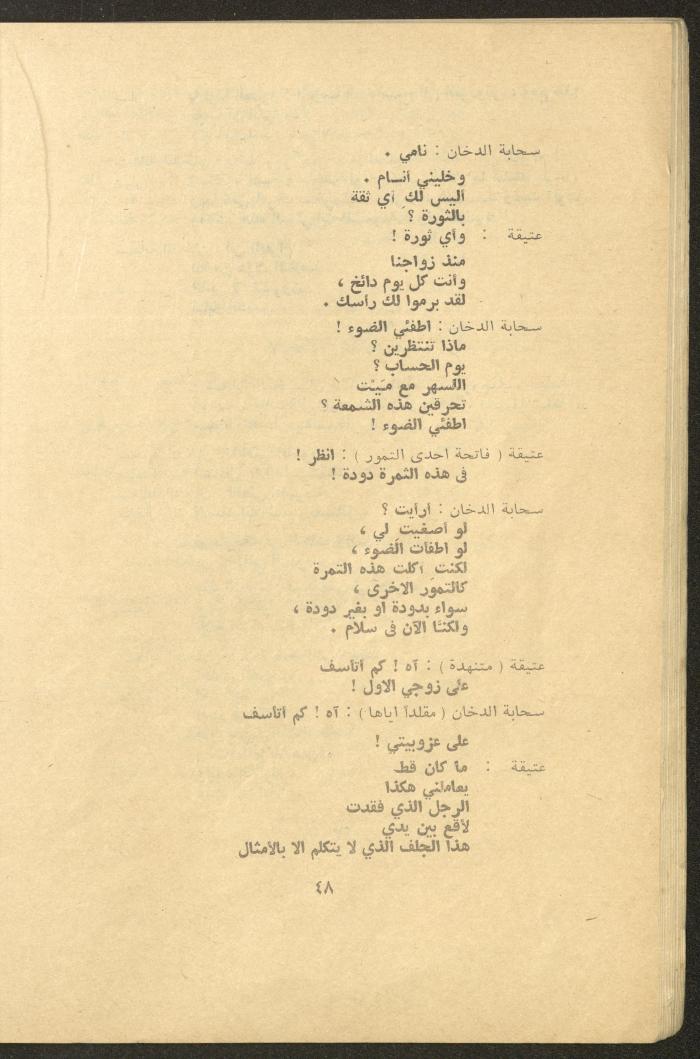 سحابة الدخان : نامي .
وخليني أنـام .
أليس لك أي ثقة
بالثورة ؟
عتيقة : وأي ثورة !
منذ زواجنا
وأنت كل يوم دائخ ،
لقد برموا لك رأسك .
سحابة الدخان : اطفئي الضوء !
ماذا تنتظرين ؟
يوم الحساب ؟
السهر مع ميت
تحرقين هذه الشمعة ؟
اطفئي الضوء !
عتيقة ( فاتحة احدى التمور ) : انظر !
فى هذه الثمرة دودة !
سحابة الدخان : أرأيت ؟
لو أصغيت لي ،
لو اطفأت الضوء ،
لكنت أكلت هذه التمرة
كالتمور الاخرى ،
سواء بدودة أو بغير دودة ،
ولكنا الآن فى سلام .
عتيقة ( متنهدة ) : آه ! كم أتأسف
على زوجي الاول !
سحابة الدخان ( مقلداً اياها ) : آه ! كم أتأسف
على عزوبيتي !
عتيقة : ما كان قط
يعاملني هكذا
الرجل الذي فقدت
لأقع بين يدي
هذا الجلف الذي لا يتكلم الا بالأمثال
٤٨